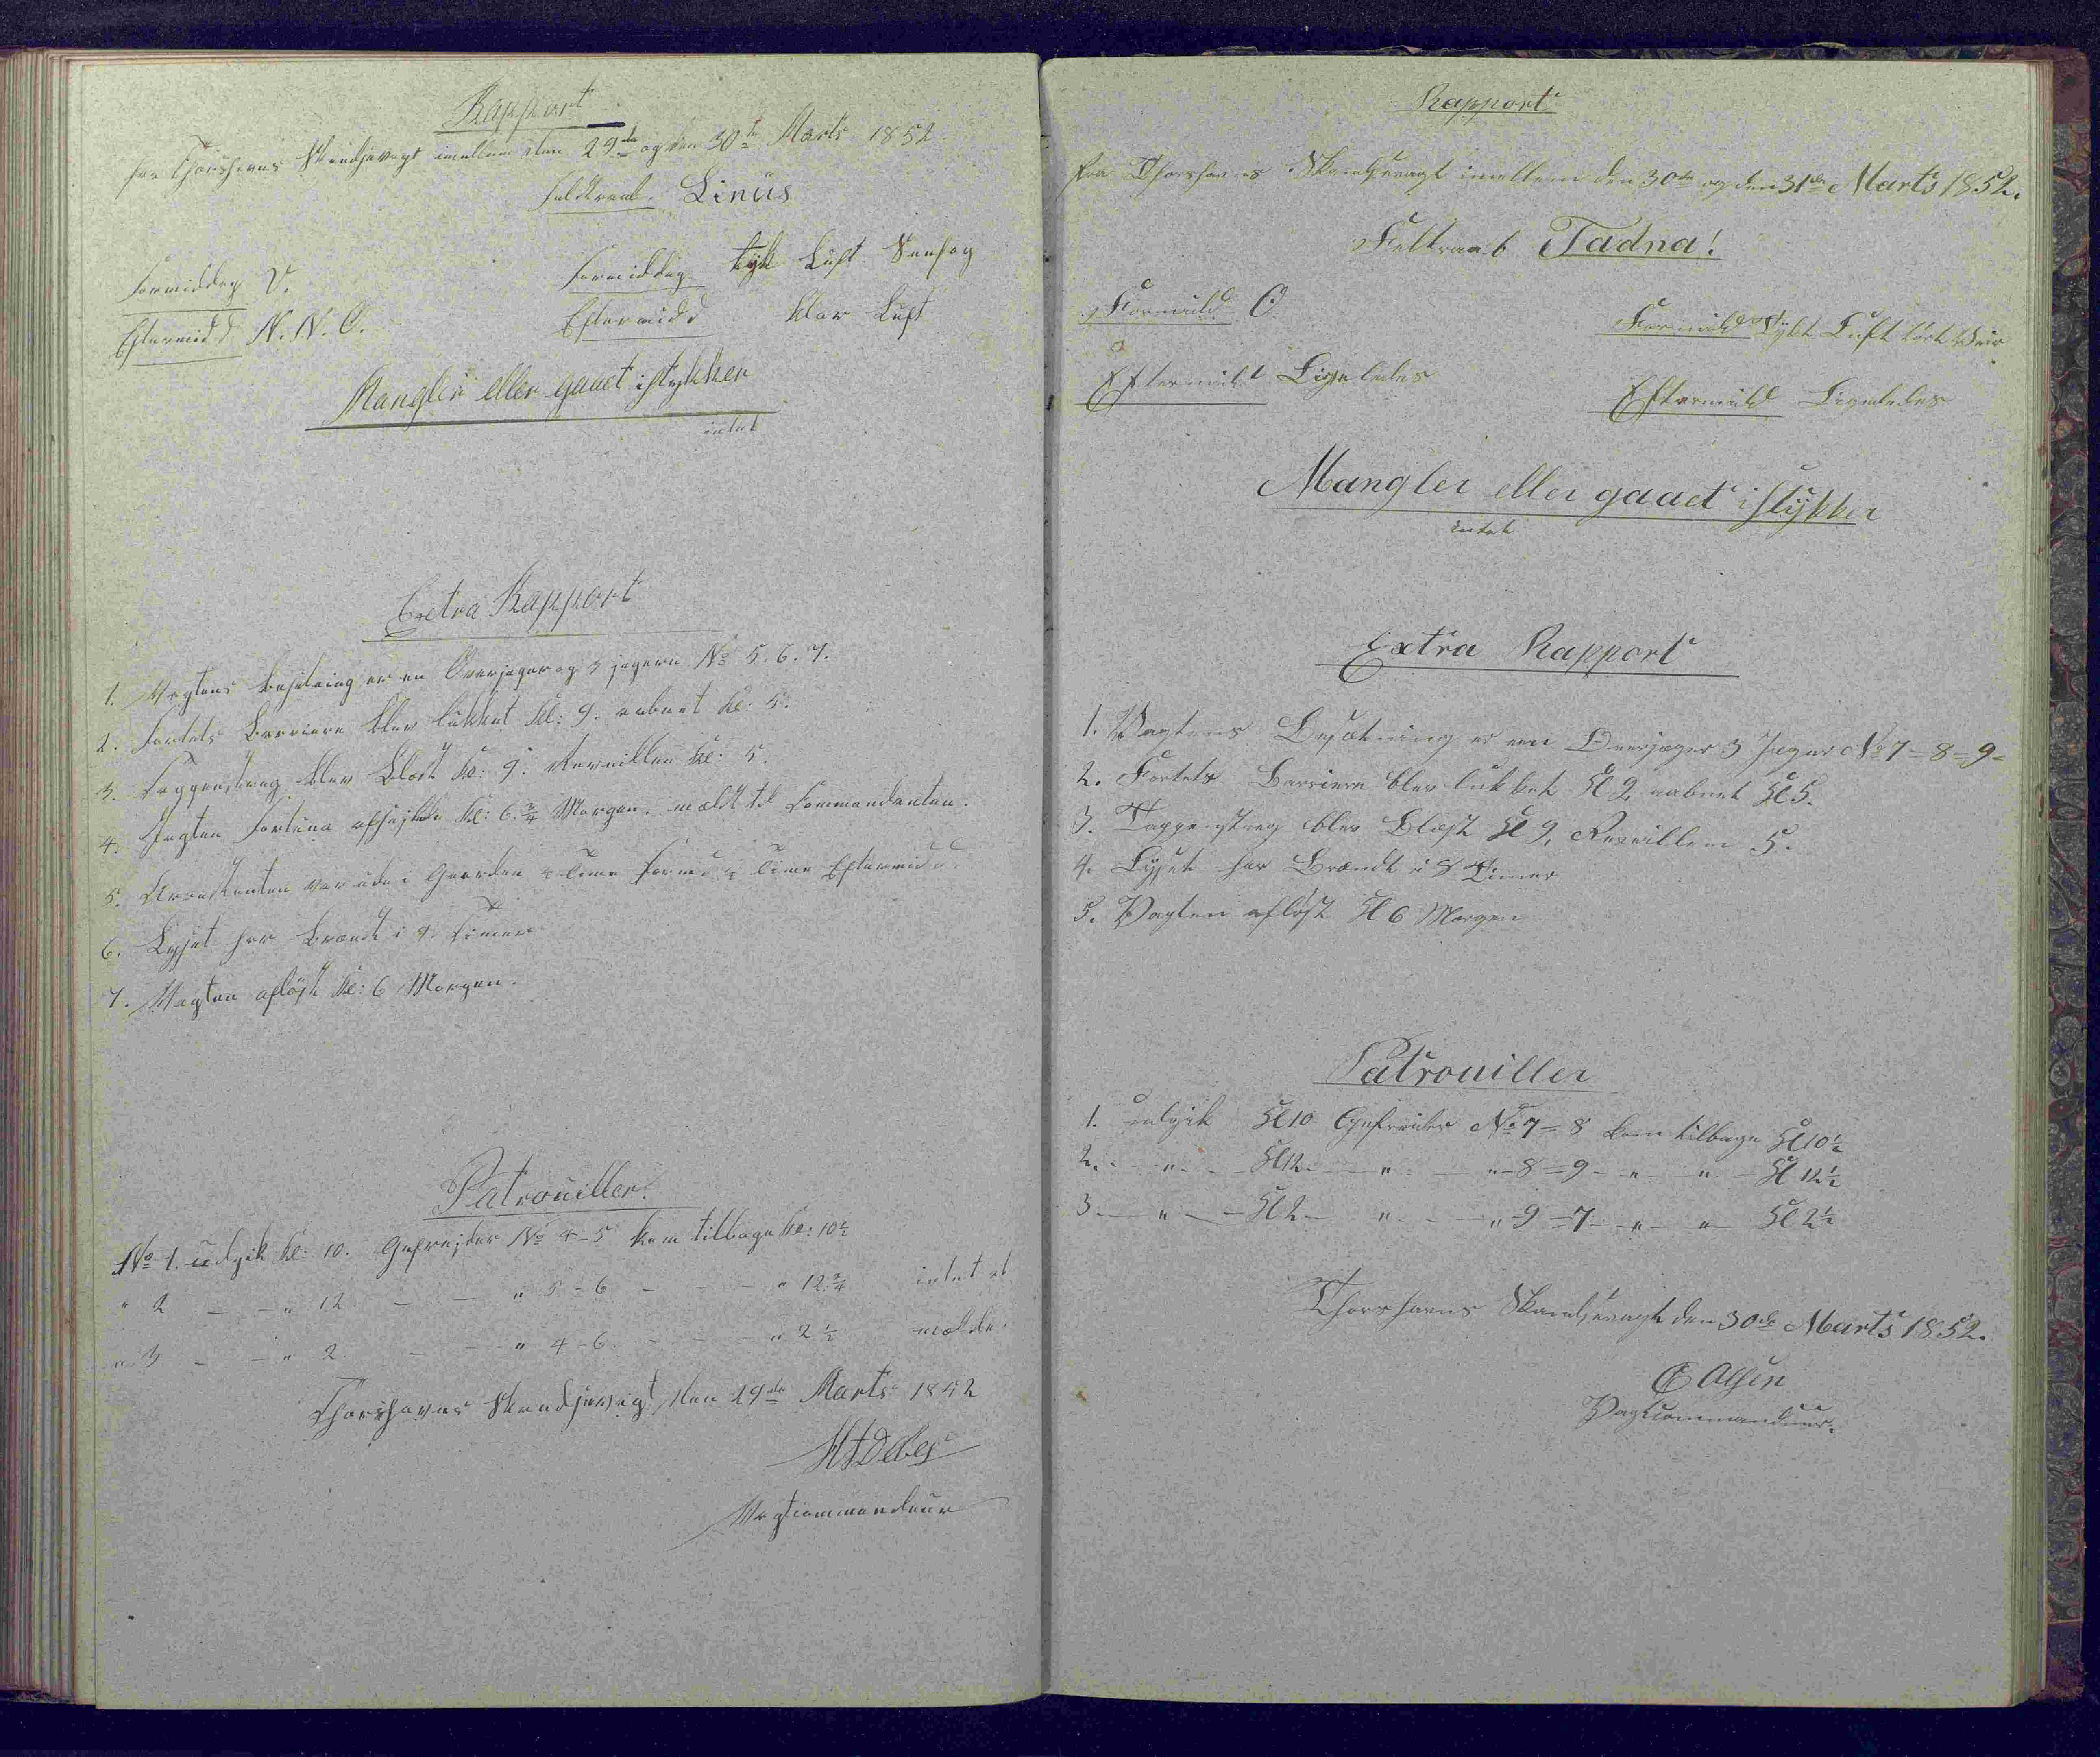 Rapport
fra Thorshavns Skandsevagt imellem den 29de og den 30te Marts 1852
Feldtraab. Linus
Formiddag V. Formiddag tyk Luft Sneefog
Eftermidd N. N. O. Eftermidd klar Luft
Mangler eller gaaet istykker
intet
Extra Rapport
1. Vagtens besetning er en Overjeger og 3 jegere No 5. 6. 7.
2. Fortets Barriere blev lukket Kl: 9. aabnet Kl: 5.
3. Tappenstreg blev blæst Kl: 9. Reveillen Kl: 5.
4. Jagten Fortuna afsejlede Kl: 6 3/4 Morgen. meldt til Commandanten.
5. Arrestanten var ude i Gaarden 1/2 Time Formd 1/2 Time Eftermidd.
6. Lyset har brændt i 9. Timer
7. Vagten afløst Kl: 6 Morgen.
Patrouiller.
No 1. udgik Kl: 10. Gefrejder No 4-5 kom tilbage Kl: 10 1/2
" 2 - - " 12 - - " 5-6 - - - " 12 3/4 intet at
" 3 - - " 2 - - " 4-6 - - - " 2 1/2 melde.
Thorshavns Skandsevagt, den 29de Marts 1852
HJDebes
Vagtcommandeur
Rapport
fra Thorshavns Skandsevagt imellem den 30te og den 31te Marts 1852.
Feltraab Tadna!
Formidd. O Formidd. Tyk Luft tørt Veir
Eftermidd Ligeledes Eftermidd Ligeledes
Mangler eller gaaet istykker
Intet
Extra Rapport
1. Vagtens Besætning er een Overjæger 3 Jæger No 7-8-9-
2. Fortets Barriere blev lukket Kl 9, aabnet Kl 5.
3. Tappenstreg blev Blæst Kl 9, Reveillen 5.
4. Lyset har Brændt i 8 Timer
5. Vagten afløst Kl 6 Morgen
Patrouiller
1. udgik Kl 10 Gefreider No 7=8 kom tilbage Kl 10 1/2
2. - " - Kl 12 - " - " - 8=9 - " - " - Kl 12 1/2
3 - " - Kl 2 - " - " 9=7 - " - " Kl 2 1/2
Thorshavns Skandsevagt den 30te Marts 1852.
Olsen
Vagtcommandeur.